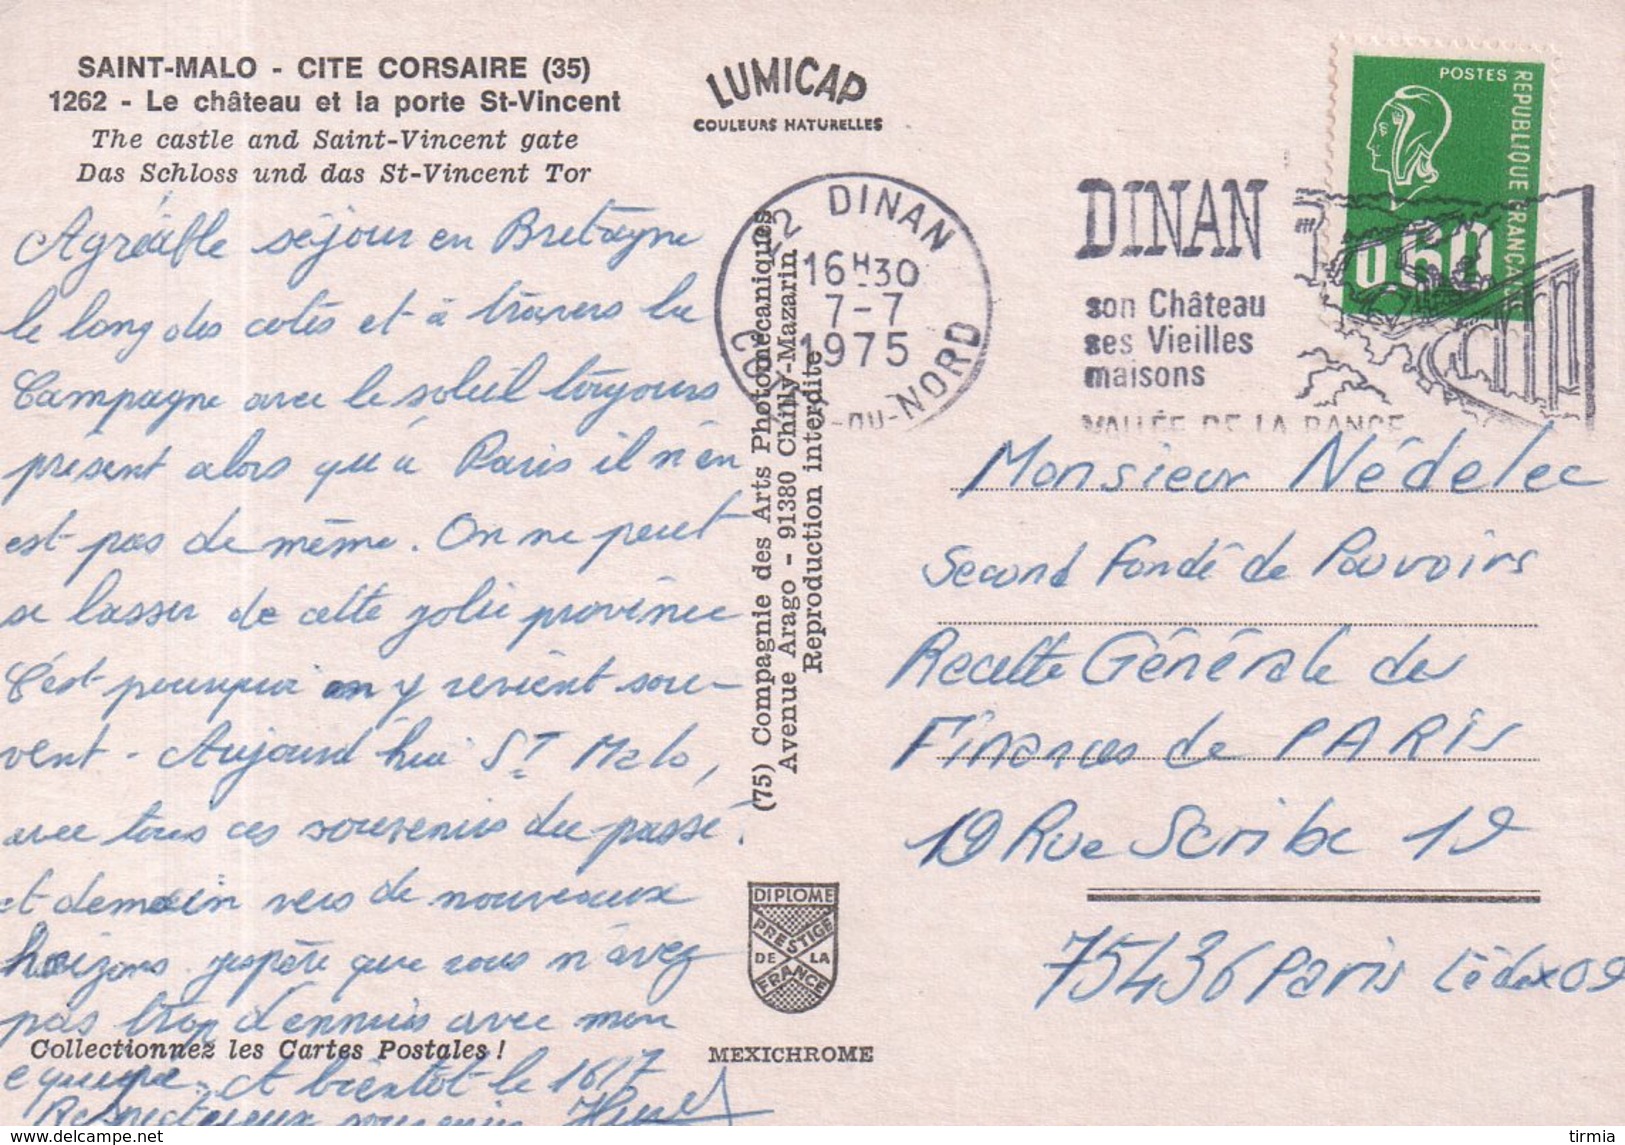 SAINT-MALO - CITE CORSAIRE (35)
1262 - Le château et la porte St-Vincent
The castle and Saint-Vincent gate
Das Schloss und das St-Vincent Tor
Agréable séjour en Bretagne
le long des cotes et à travers la
Campagne avec le soleil toujours
présent alors qu'à Paris il n'en
est pas de même. On ne peut
se lasser de cette jolie province
C'est pourquoi on y revient sou-
vent - Aujourd'hui St Malo,
avec tous ces souvenirs du passé.
et demain vers de nouveaux
horizons. j'espère que vous n'avez
pas trop d'ennuis avec mon
équipe. A bientôt le 16/7
Respectueux souvenirs
Collectionnez les Cartes Postales !
LUMICAP
COULEURS NATURELLES
22 DINAN
16H30
7-7
1975
CO -DU-NORD
DINAN
son Château
ses Vieilles
maisons
VALLÉE DE LA RANCE
POSTES
REPUBLIQUE FRANÇAISE
0.60
(75) Compagnie des Arts Photomécaniques
Avenue Arago - 91380 Chilly-Mazarin
Reproduction interdite
Monsieur Nédelec
Second Fondé de Pouvoirs
Recette Générale des
Finances de PARIS
19 Rue Scribe 19
75436 Paris Cédex 09
DIPLOME
PRESTIGE
DE LA
FRANCE
MEXICHROME
https://www.delcampe.net
tirmia